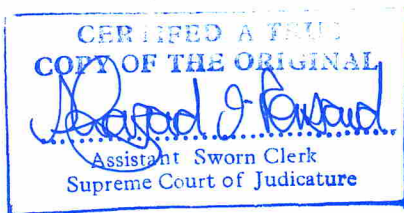 CERTIFED A TRUE
COPY OF THE ORIGINAL
Assistant Sworn Clerk
Supreme Court of Judicature